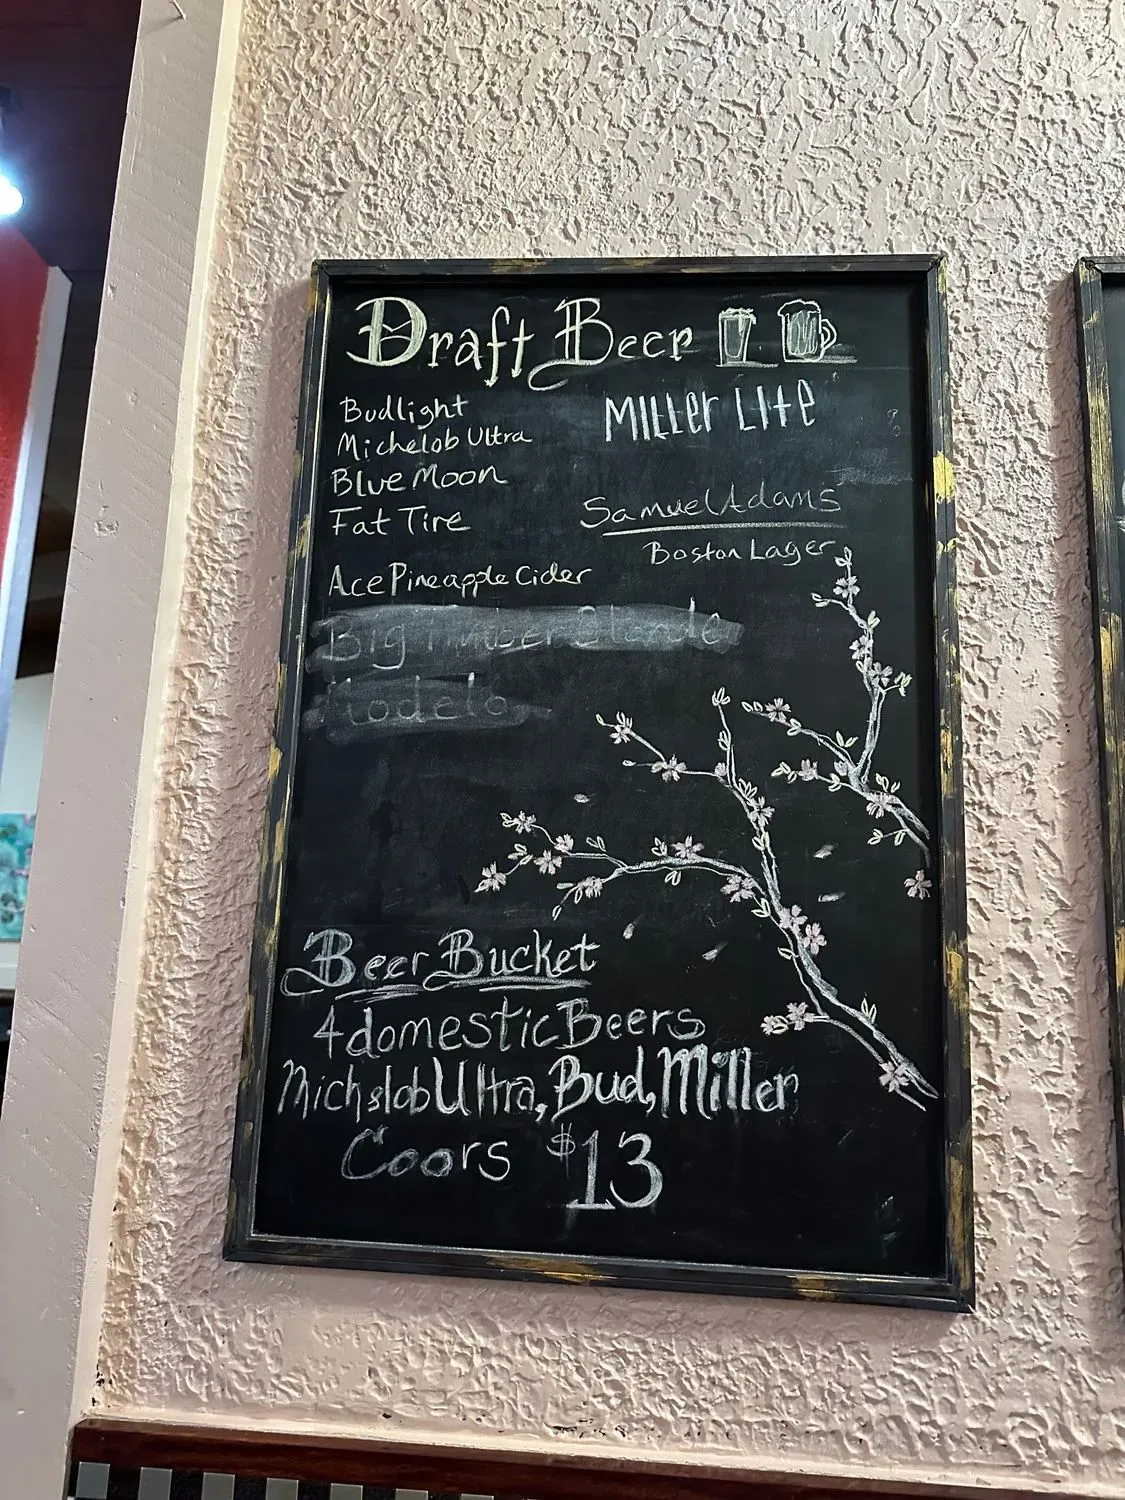 Draft Beer
Budlight
Michelob Ultra
Blue Moon
Fat Tire
Ace Pineapple Cider
Big Timber Blonde
Modelo
Miller Lite
Samuel Adams
Boston Lager
Beer Bucket
4 domestic Beers
Michelob Ultra, Bud, Miller
Coors $13